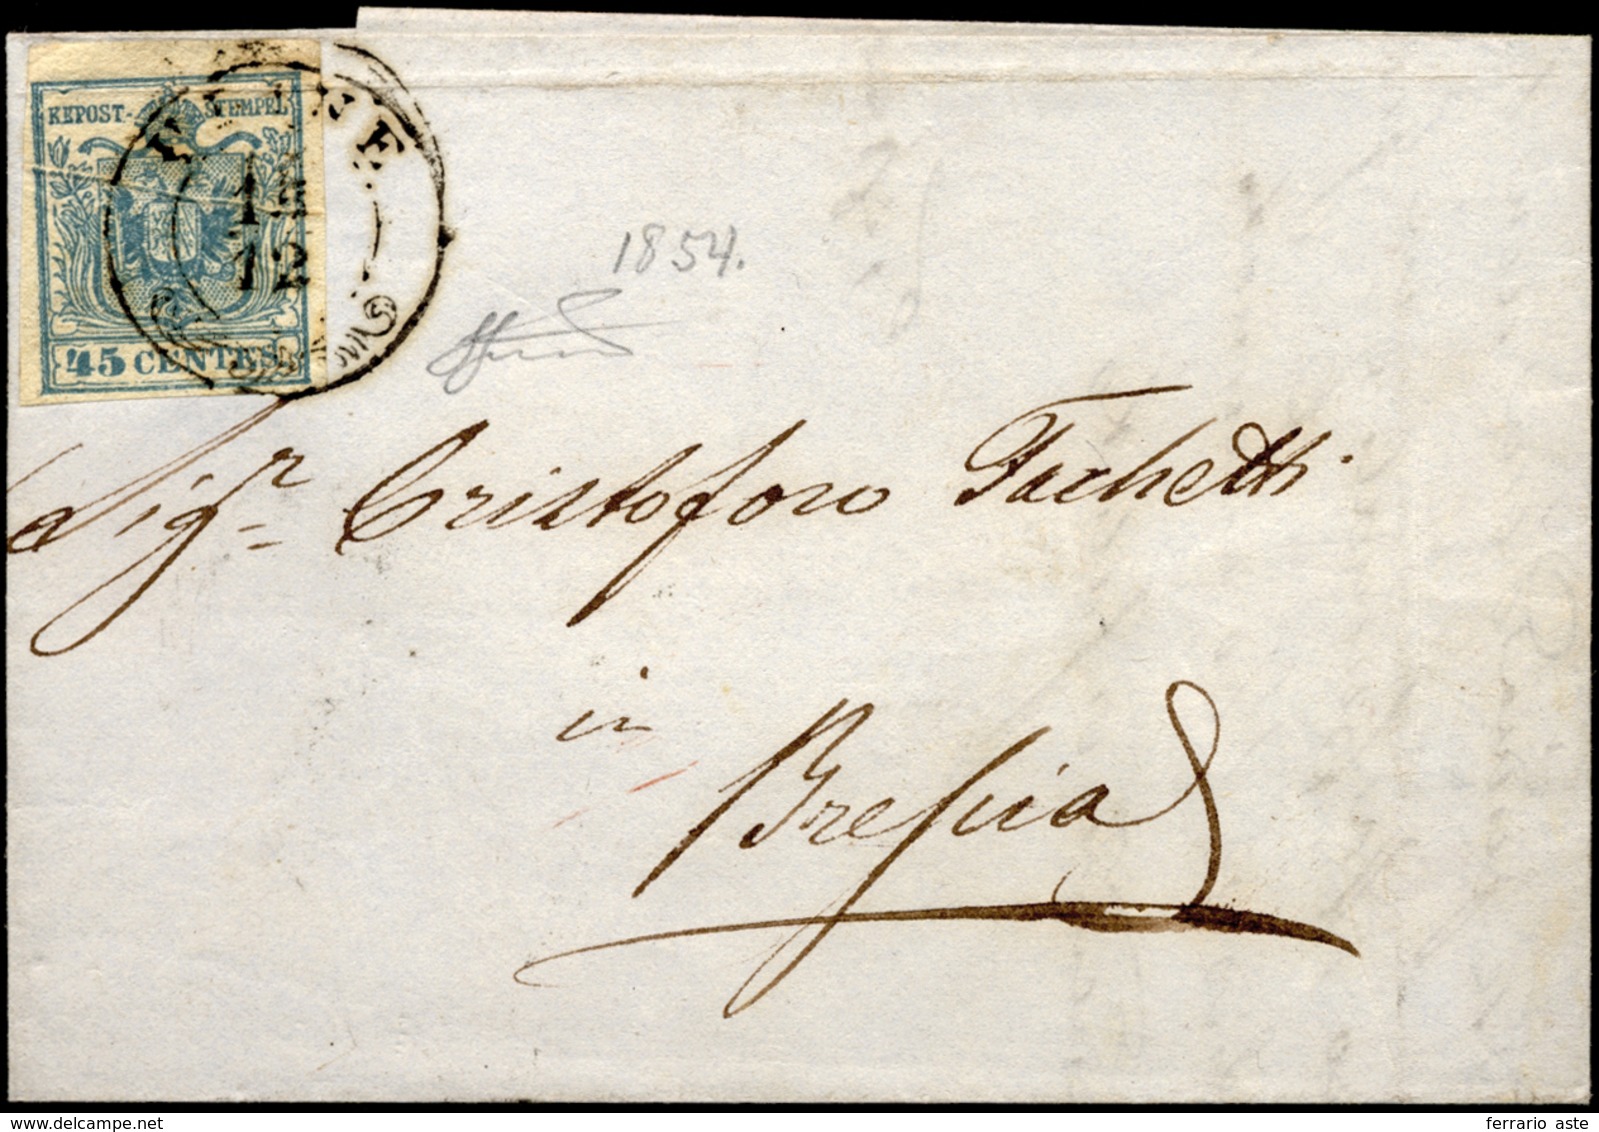 KEPOST-STEMPEL
14
12
45 CENTES
1854.
al Sigr Cristoforo Fachetti
in
Brescia
delcampe.net
ferrario aste